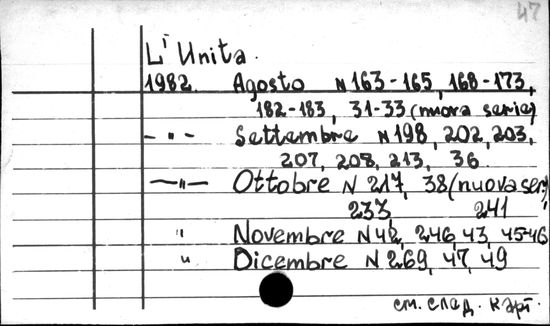 47
L' Unita.
1982. Agosto N 163-165, 168-173,
182-183, 31-33 (nuova serie)
— „ — Settembre N 198, 202, 203,
207, 208, 213, 36.
— „ — Ottobre N 217, 38 (nuova ser.)
233, 241
„ Novembre N 42, 246, 43, 45-46
„ Dicembre N 269, 47, 49
см. след. карт.